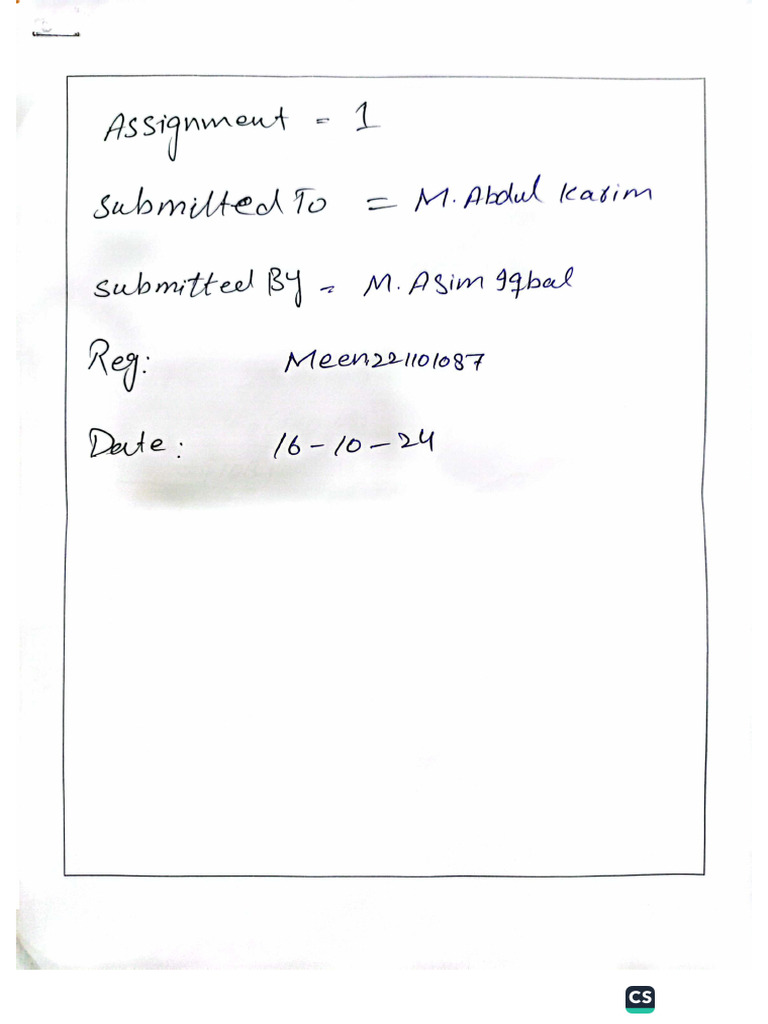 Assignment - 1
Submitted To = M. Abdul Karim
Submitted By - M. Asim Iqbal
Reg: Meen221101087
Date: 16-10-24
CS